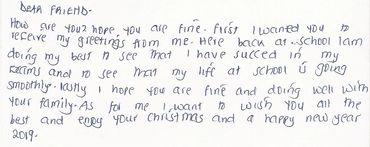 DEAR FRIEND.
How are you? hope you are fine. First I wanted you to
receive my greetings from me. Here back at school I am
doing my best to see that I have succed in my
Exams and to see that my life at school is going
smoothly. Lastly I hope you are fine and doing well with
your family. As for me I want to wish you all the
best and enjoy your Christmas and a happy new year
2019.